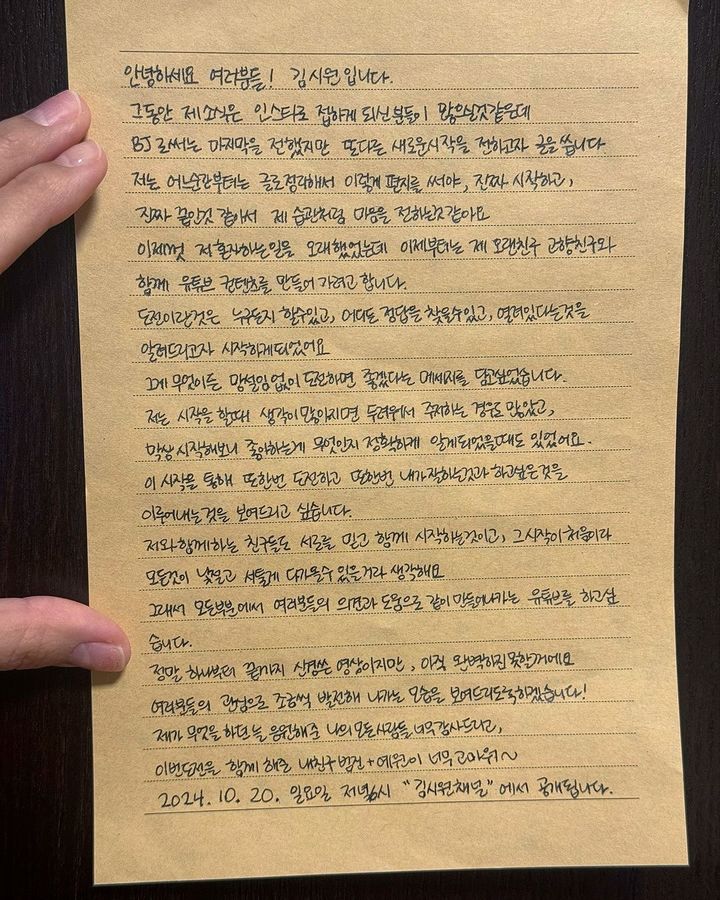 안녕하세요 여러분들! 김시원입니다.
그동안 제 소식은 인스타로 접하게 되신분들이 많으실것같은데
BJ로써는 마지막을 전했지만 또다른 새로운시작을 전하고자 글을 씁니다
저는 어느순간부터는 글로정리해서 이렇게 편지를 써야, 진짜 시작하고,
진짜 끝인것 같아서 제 습관처럼 마음을 전하는것같아요
이제껏 저 혼자하는일을 오래했었는데 이제부터는 제 오랜친구 고향친구와
함께 유튜브 컨텐츠를 만들어 가려고 합니다.
도전이란것은 누구든지 할수있고, 어디든 정답을 찾을수있고, 열려있다는것을
알려드리고자 시작하게되었어요
그게 무엇이든 망설임없이 도전하면 좋겠다는 메세지를 담고싶었습니다.
저는 시작을 할때 생각이 많아지면 두려워서 주저하는 경우도 많았고,
막상 시작해보니 좋아하는게 무엇인지 정확하게 알게되었을때도 있었어요.
이 시작을 통해 또한번 도전하고 또한번 내가잘하는것과 하고싶은것을
이루어내는것을 보여드리고 싶습니다.
저와함께하는 친구들도 서로를 믿고 함께 시작하는것이고, 그시작이 처음이라
모든것이 낯설고 서툴게 다가올수 있을거라 생각해요
그래서 모든부분에서 여러분들의 의견과 도움으로 같이 만들어나가는 유튜브를 하고싶
습니다.
정말 하나부터 끝까지 신경쓴 영상이지만, 아직 완벽하진못한거에요
여러분들의 관심으로 조금씩 발전해 나가는 모습을 보여드리도록하겠습니다!
제가 무엇을 하던 늘 응원해준 나의 모든사람들 너무감사드리고,
이번도전을 함께 해준 내친구 범진+예원이 너무 고마워~
2024. 10. 20. 일요일 저녁6시 "김시원채널"에서 공개됩니다.